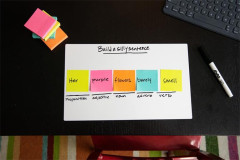 Build a silly sentence
Her purple flowers barely smell
pronoun adjective noun adverb verb